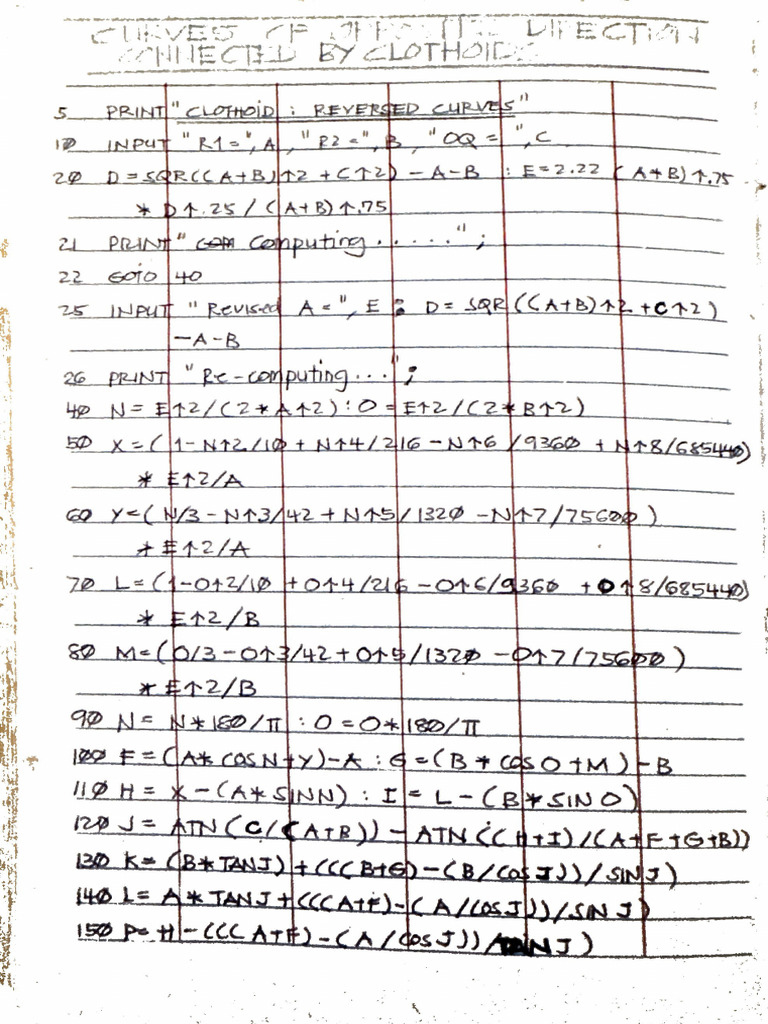 CURVES OF OPPOSITE DIRECTION
CONNECTED BY CLOTHOIDS
5 PRINT "CLOTHOID : REVERSED CURVES"
10 INPUT "R1=", A, "R2=", B, "OQ = ", C
20 D=SQR((A+B)↑2+C↑2)-A-B : E=2.22 (A+B)↑.75
* D↑.25/(A+B)↑.75
21 PRINT " Computing....." ;
22 GOTO 40
25 INPUT "Revised A=", E : D=SQR((A+B)↑2+C↑2)
-A-B
26 PRINT "Re-computing..." ;
40 N=E↑2/(2*A↑2):O=E↑2/(2*B↑2)
50 X=(1-N↑2/10+N↑4/216-N↑6/9360+N↑8/685440)
* E↑2/A
60 Y=(N/3-N↑3/42+N↑5/1320-N↑7/75600)
* E↑2/A
70 L=(1-O↑2/10+O↑4/216-O↑6/9360+O↑8/685440)
* E↑2/B
80 M=(O/3-O↑3/42+O↑5/1320-O↑7/75600)
* E↑2/B
90 N=N*180/π : O=O*180/π
100 F=(A*COSN+Y)-A : G=(B*COSO+M)-B
110 H=X-(A*SINN) : I=L-(B*SINO)
120 J=ATN(C/(A+B))-ATN((H+I)/(A+F+G+B))
130 K=(B*TANJ)+(((B+G)-(B/COSJ))/SINJ)
140 L=A*TANJ+(((A+F)-(A/COSJ))/SINJ)
150 P=H-(((A+F)-(A/COSJ))/TANJ)